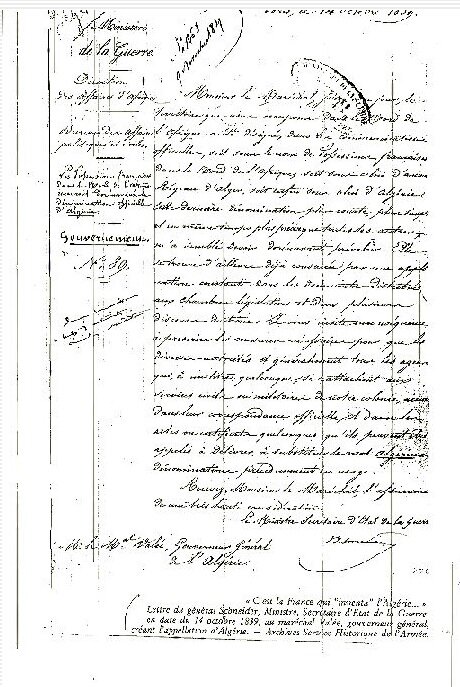 Paris, le 14 octobre 1839.
Ministère
de la Guerre.
Direction
des Affaires d'Afrique
Bureau des Affaires
politiques et civiles.
Gouvernement
N° 89.
Monsieur le Maréchal, jusqu'à ce jour, le
territoire que nous occupons dans le Nord de
l'Afrique a été désigné, dans les communications
officielles, soit sous le nom de Possessions françaises
dans le Nord de l'Afrique, soit sous celui d'ancienne
Régence d'Alger, soit enfin sous celui d'Algérie.
Cette dernière dénomination plus courte, plus simple
et en même temps plus précise que toutes les autres,
m'a semblé devoir dorénavant prévaloir. Elle
se trouve d'ailleurs déjà consacrée par une
constante dans les documents distribués
aux chambres législatives et dans plusieurs
discours du trône. Je vous invite en conséquence
à prendre les mesures nécessaires pour que les
diverses autorités et généralement tous les agents
qui, à un titre quelconque, se rattachent aux
services civils ou militaires de notre colonie,
dans leur correspondance officielle, et dans les
actes ou certificats quelconques qu'ils peuvent être
appelés à délivrer, à substituer le mot Algérie aux
dénominations précédemment en usage.
Recevez, Monsieur le Maréchal, l'assurance
de ma très haute considération.
Le Ministre Secrétaire d'Etat de la Guerre
Schneider
M. le M.al Valée, Gouverneur Général
de l'Algérie.
« C'est la France qui "inventa" l'Algérie... »
Lettre du général Schneider, Ministre, Secrétaire d'Etat de la Guerre
en date du 14 octobre 1839, au maréchal Valée, gouverneur général,
créant l'appellation d'Algérie. — Archives Service Historique de l'Armée.